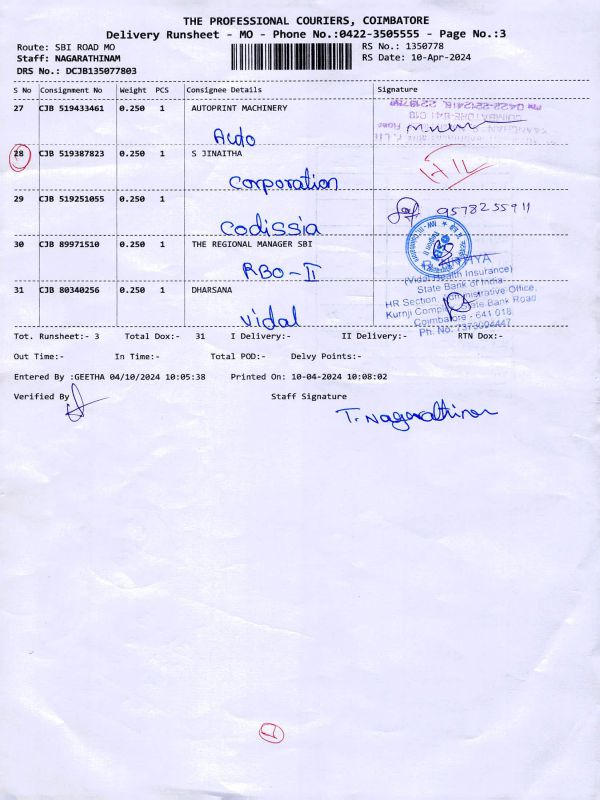 THE PROFESSIONAL COURIERS, COIMBATORE
Delivery Runsheet - MO - Phone No.:0422-3505555 - Page No.:3
Route: SBI ROAD MO RS No.: 1350778
Staff: NAGARATHINAM RS Date: 10-Apr-2024
DRS No.: DCJB135077803
S No Consignment No Weight PCS Consignee Details Signature
27 CJB 519433461 0.250 1 AUTOPRINT MACHINERY
Auto
28 CJB 519387823 0.250 1 S JINAITHA
Corporation
29 CJB 519251055 0.250 1 9578255911
Codissia
30 CJB 89971510 0.250 1 THE REGIONAL MANAGER SBI
RBO-II
(Vidal Health Insurance)
State Bank of India
31 CJB 80340256 0.250 1 DHARSANA
HR Section, Administrative Office,
State Bank Road
Coimbatore - 641 018.
Vidal
Ph. No: 7373004447
Tot. Runsheet:- 3 Total Dox:- 31 I Delivery:- II Delivery:- RTN Dox:-
Out Time:- In Time:- Total POD:- Delvy Points:-
Entered By :GEETHA 04/10/2024 10:05:38 Printed On: 10-04-2024 10:08:02
Verified By Staff Signature
T. Nagarathinam